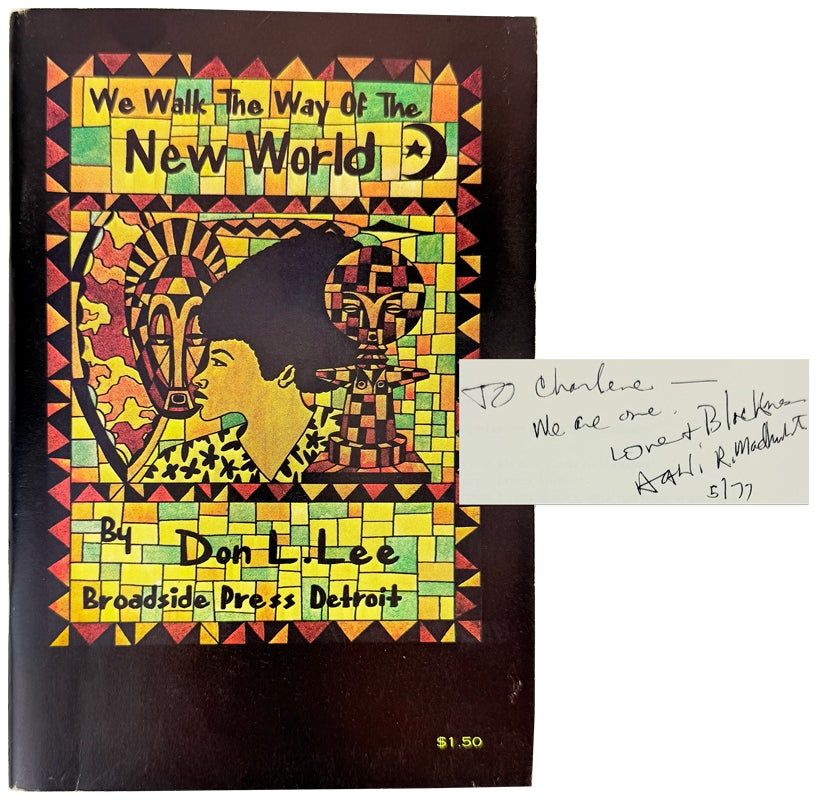 We Walk The Way Of The
New World
By Don L. Lee
Broadside Press Detroit
$1.50
To Charlene —
We are one.
Love & Blackness
Haki R. Madhubuti
5/77